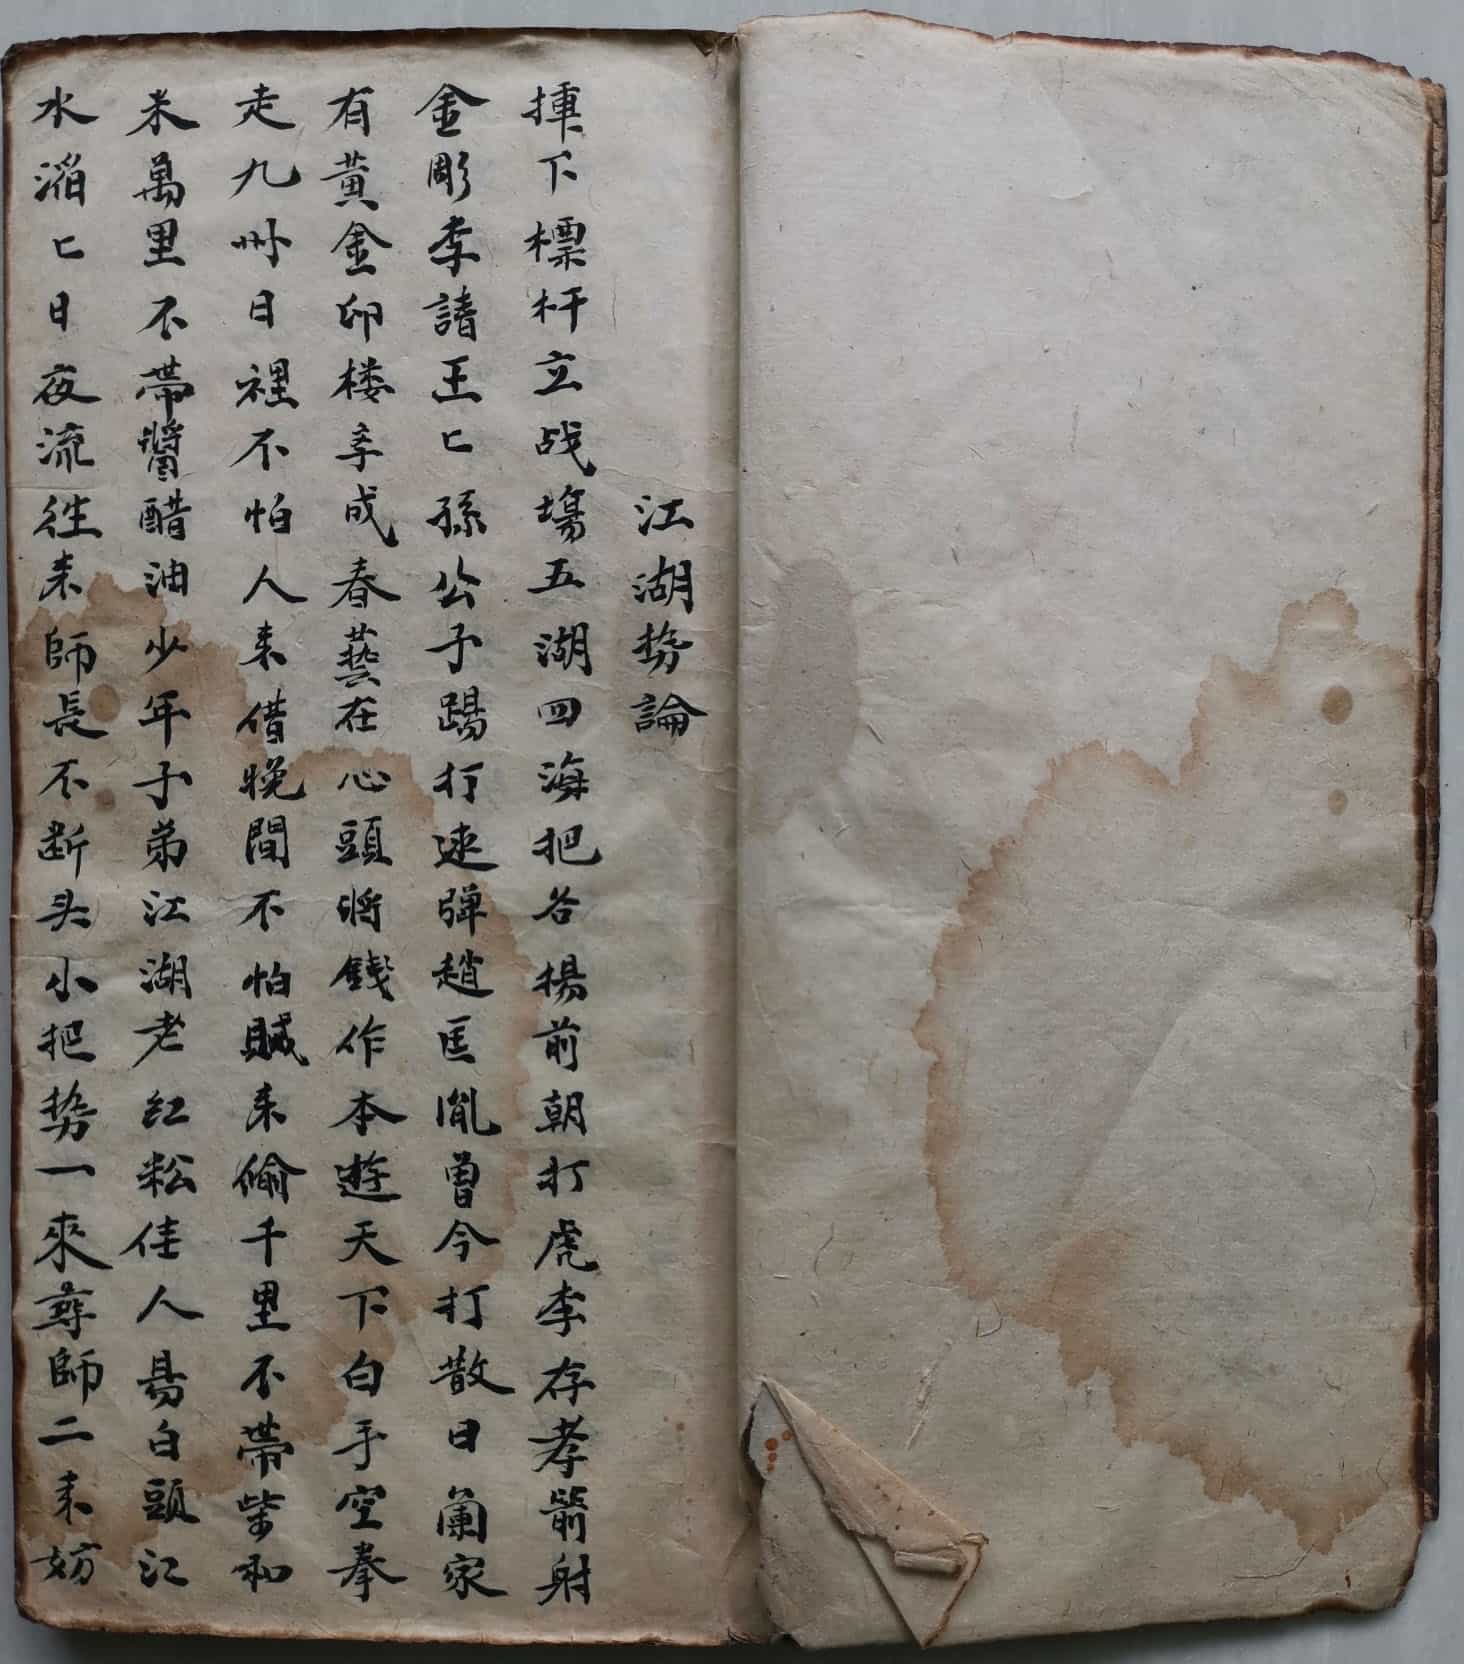 江湖势論
揮下標杆立战塲五湖四海把名揚前朝打虎李存孝箭射
金彫李請王匕孫公子踢打速弹趙匡胤曾今打散日蘭家
有黄金印楼李成春藝在心頭將錢作本遊天下白手空拳
走九州日裡不怕人来借晚間不怕贼来偷千里不帶柴和
米萬里不帶醬醋油少年子弟江湖老红粉佳人易白頭江
水滔匕日夜流徃来師長不断头小把势一來尊師二来妨